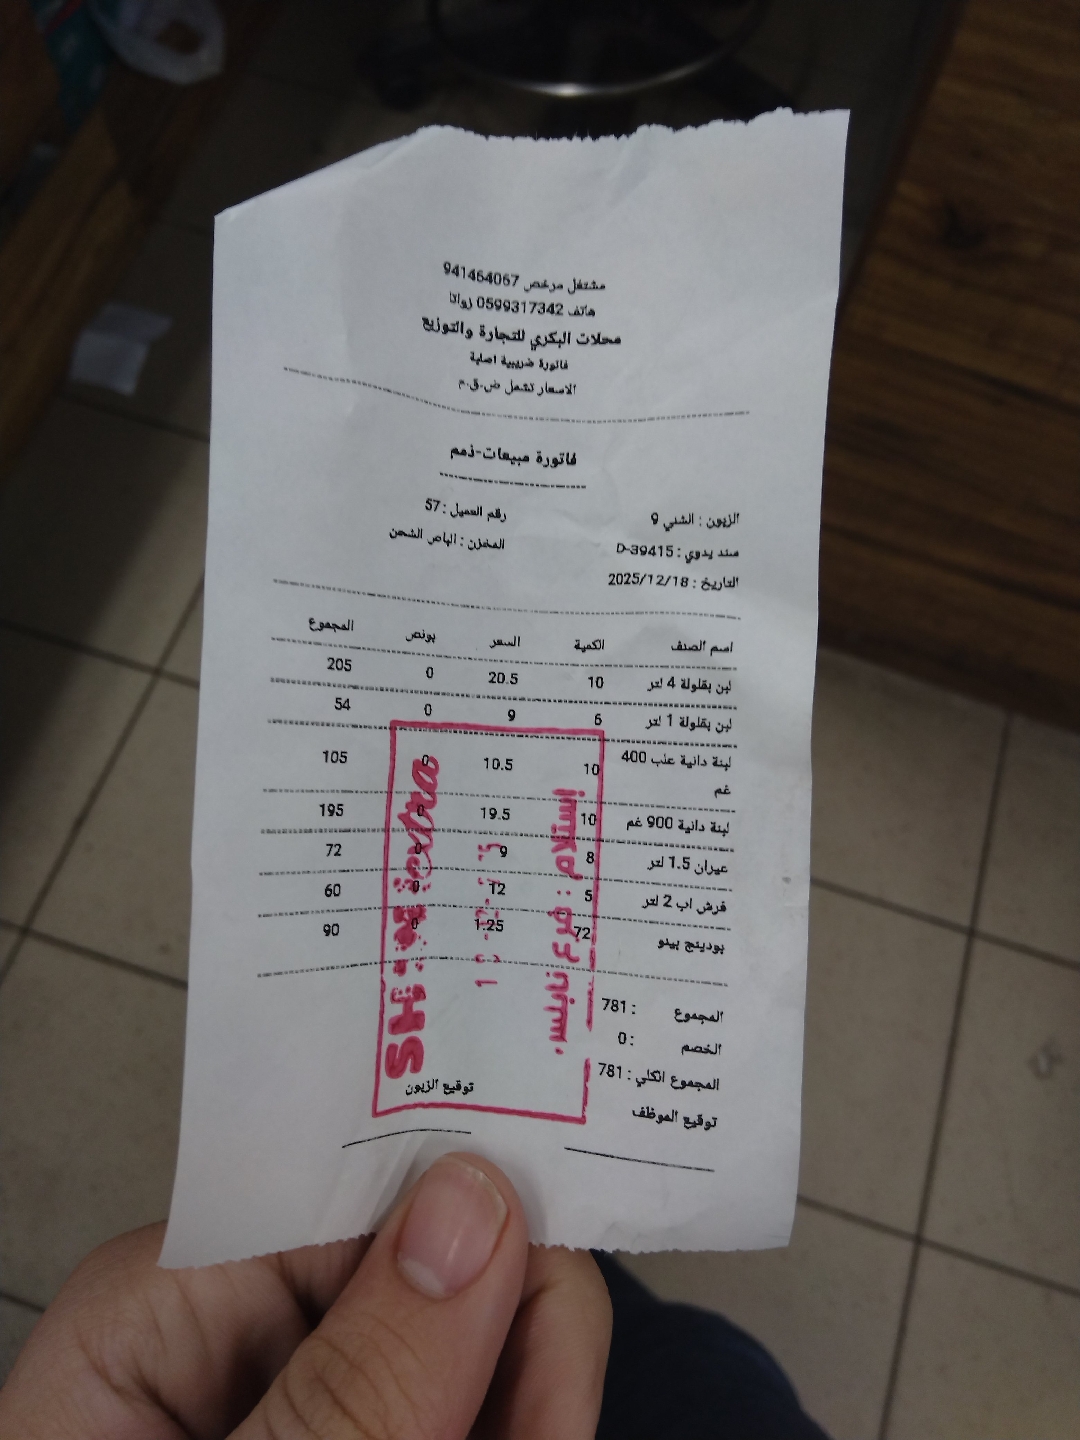 مشتغل مرخص 941464067
هاتف 0599317342 زواتا
محلات البكري للتجارة والتوزيع
فاتورة ضريبية اصلية
الاسعار تشمل ض.ق.م
فاتورة مبيعات-ذمم
الزبون : الشني 9 رقم العميل : 57
سند يدوي : D-39415 المخزن : الباص الشحن
التاريخ : 2025/12/18
اسم الصنف الكمية السعر بونص المجموع
لبن بقلولة 4 لتر 10 20.5 0 205
لبن بقلولة 1 لتر 6 9 0 54
لبنة دانية علب 400 غم 10 10.5 0 105
لبنة دانية 900 غم 10 19.5 0 195
عيران 1.5 لتر 8 9 0 72
فرش اب 2 لتر 5 12 0 60
بودينج بينو 72 1.25 0 90
المجموع : 781
الخصم : 0
المجموع الكلي : 781
توقيع الموظف توقيع الزبون
إستلام : فرع نابلس
extra